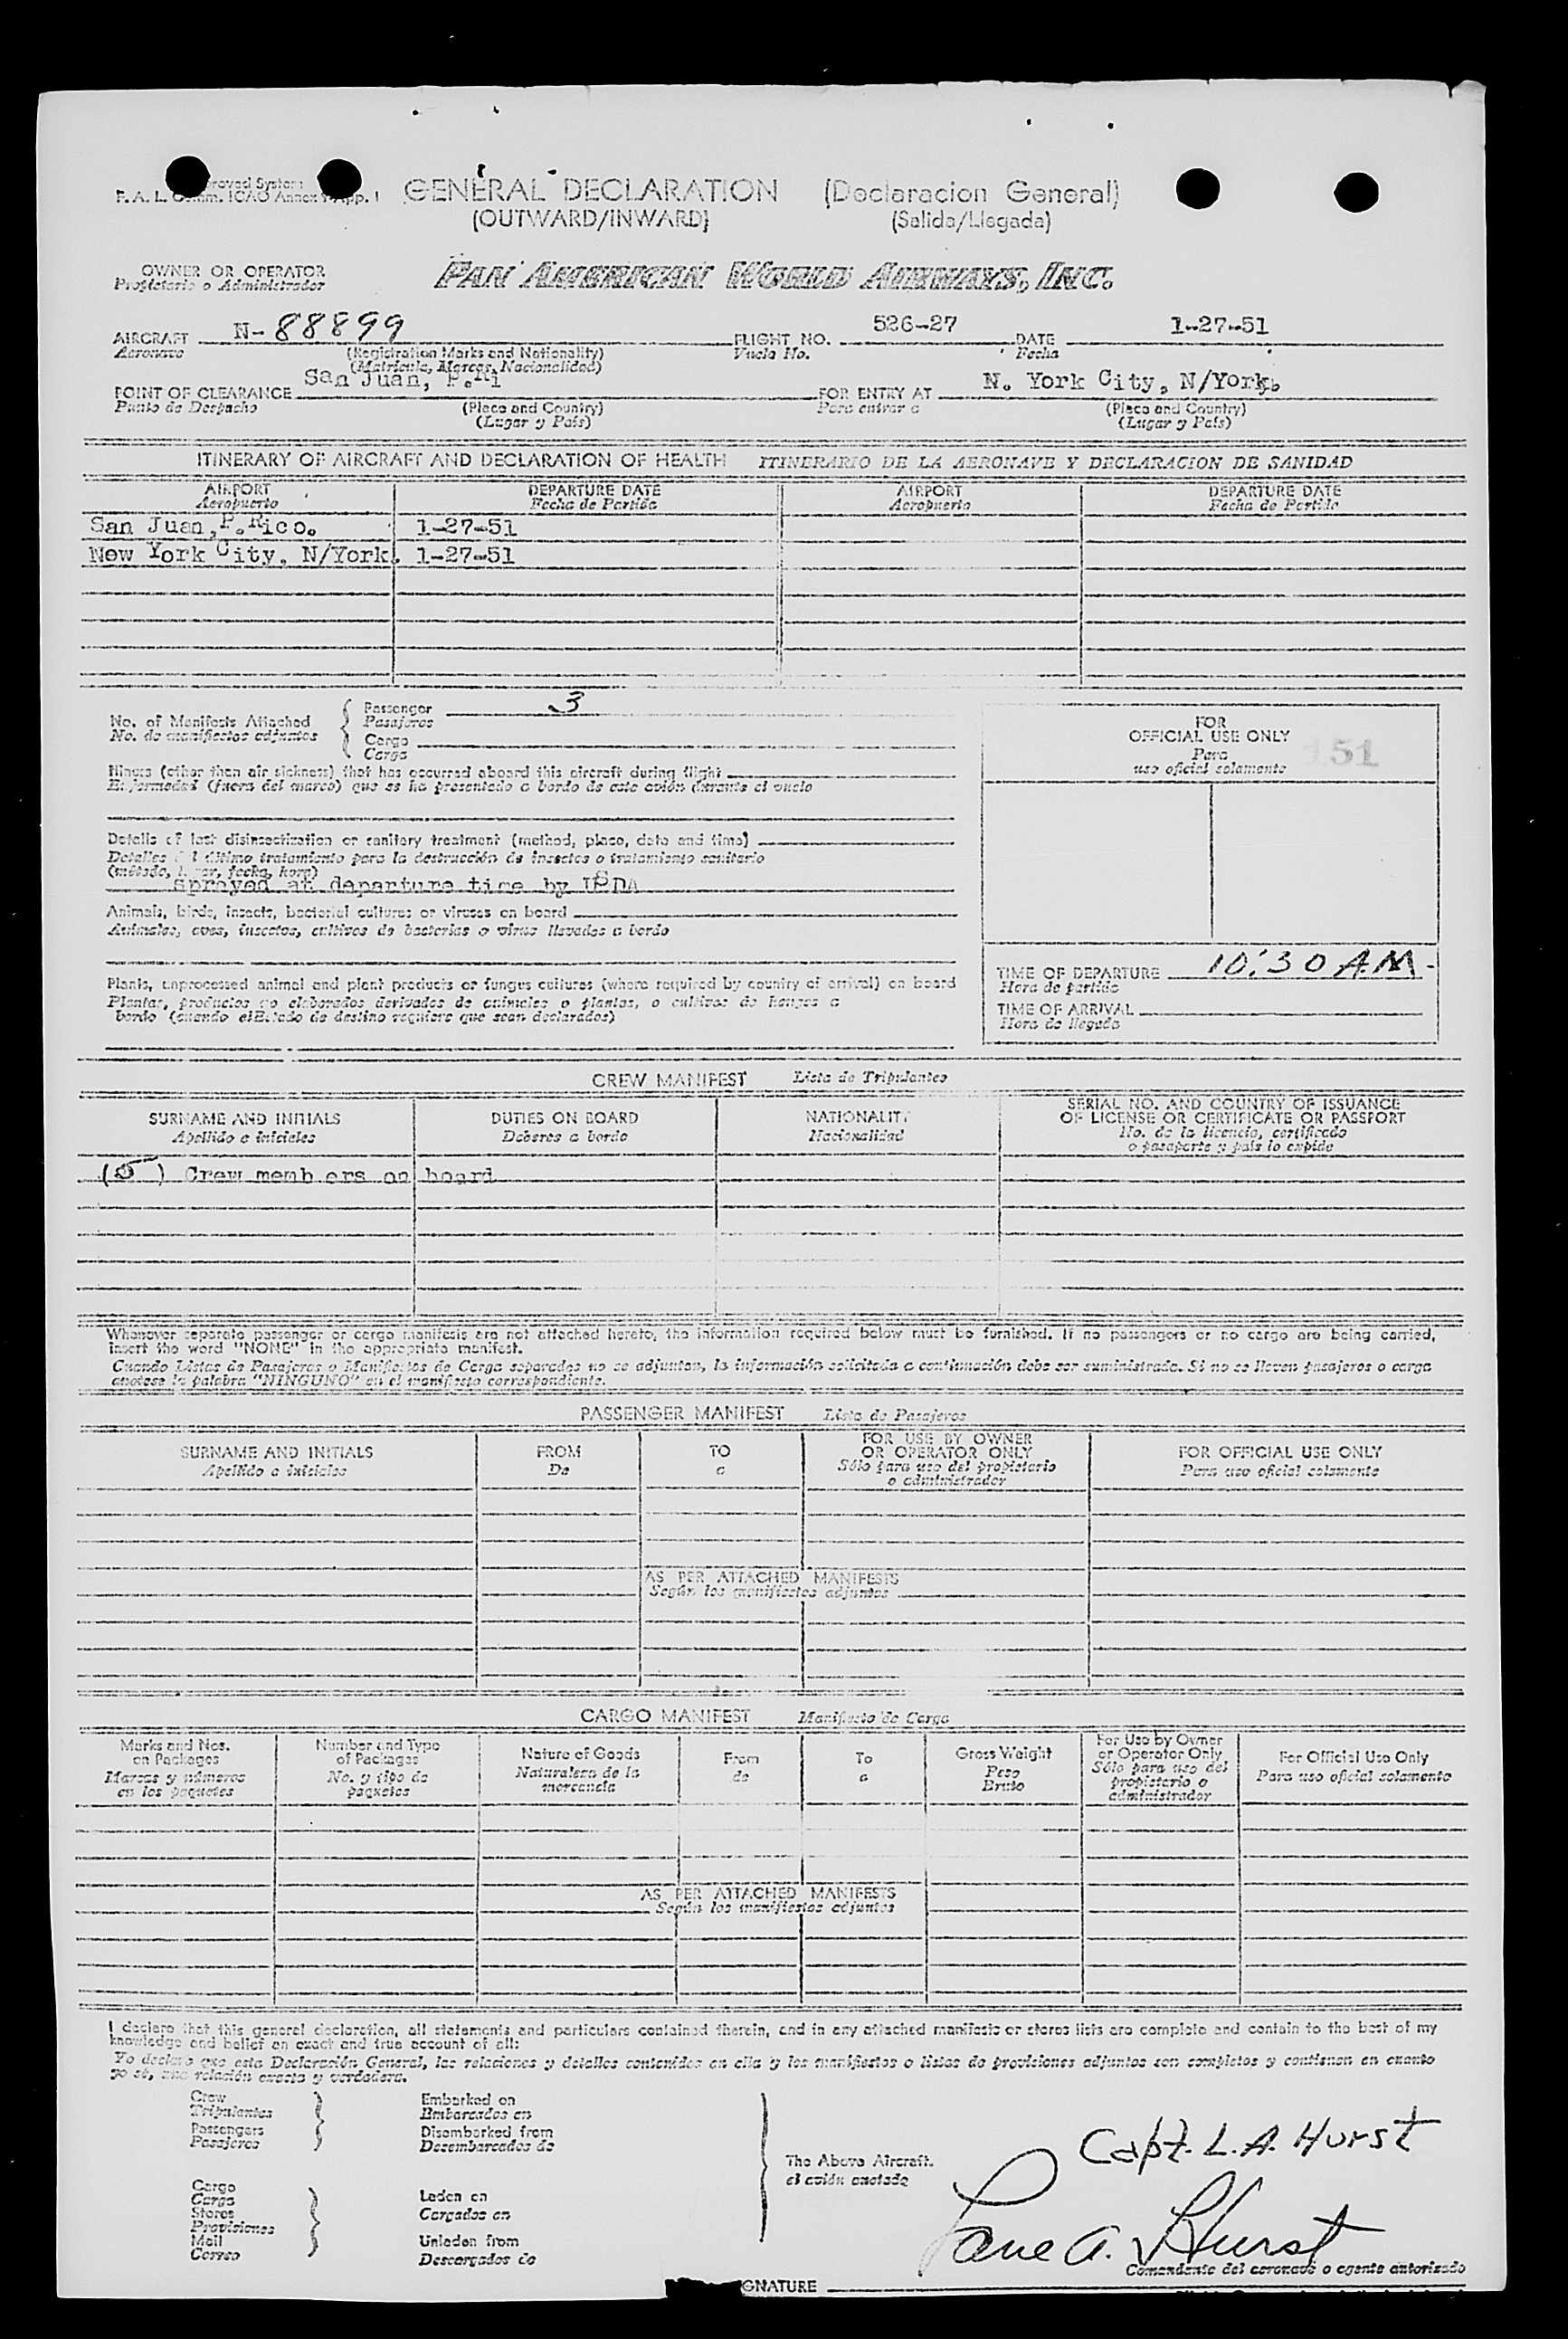 GENERAL DECLARATION (Declaracion General)
F. A. L. Comm. ICAO Annex App. 1
(OUTWARD/INWARD) (Salida/Llegada)
OWNER OR OPERATOR
Propietario o Administrador
PAN AMERICAN WORLD AIRWAYS, INC.
AIRCRAFT N-88899 FLIGHT NO. 526-27 DATE 1-27-51
Aeronave (Registration Marks and Nationality) Vuelo No. Fecha
(Matricula, Marcas, Nacionalidad)
POINT OF CLEARANCE San Juan, P.Ri FOR ENTRY AT N. York City, N/York.
Punto de Despacho (Place and Country) Para entrar a (Place and Country)
(Lugar y País) (Lugar y País)
ITINERARY OF AIRCRAFT AND DECLARATION OF HEALTH ITINERARIO DE LA AERONAVE Y DECLARACION DE SANIDAD
AIRPORT DEPARTURE DATE AIRPORT DEPARTURE DATE
Aeropuerto Fecha de Partida Aeropuerto Fecha de Partida
San Juan, P.Rico. 1-27-51
New York City, N/York. 1-27-51
No. of Manifests Attached
No. de manifiestos adjuntos
Passenger 3
Pasajeros
Cargo
Carga
Illness (other than air sickness) that has occurred aboard this aircraft during flight
Enfermedad (fuera del mareo) que se ha presentado a bordo de este avión durante el vuelo
Details of last disinsectization or sanitary treatment (method, place, date and time)
Detalles del último tratamiento para la destrucción de insectos o tratamiento sanitario
(método, lugar, fecha, hora)
sprayed at departure time by USDA
Animals, birds, insects, bacterial cultures or viruses on board
Animales, aves, insectos, cultivos de bacterias o virus llevados a bordo
Plants, unprocessed animal and plant products or fungus cultures (where required by country of arrival) on board
Plantas, productos no elaborados derivados de animales o plantas, o cultivos de hongos a
bordo (cuando el Estado de destino requiera que sean declarados)
FOR
OFFICIAL USE ONLY
Para
uso oficial solamente
51
TIME OF DEPARTURE 10:30 A.M.
Hora de partida
TIME OF ARRIVAL
Hora de llegada
CREW MANIFEST Lista de Tripulantes
SURNAME AND INITIALS DUTIES ON BOARD NATIONALITY SERIAL NO. AND COUNTRY OF ISSUANCE
OF LICENSE OR CERTIFICATE OR PASSPORT
Apellido e iniciales Deberes a bordo Nacionalidad No. de la licencia, certificado
o pasaporte y país lo expide
(5) Crew memb ers on board
Whenever separate passenger or cargo manifests are not attached hereto, the information required below must be furnished. If no passengers or no cargo are being carried,
insert the word "NONE" in the appropriate manifest.
Cuando Listas de Pasajeros o Manifiestos de Carga separados no se adjuntan, la información solicitada a continuación debe ser suministrada. Si no se llevan pasajeros o carga
anotese la palabra "NINGUNO" en el manifiesto correspondiente.
PASSENGER MANIFEST Lista de Pasajeros
SURNAME AND INITIALS FROM TO FOR USE BY OWNER
OR OPERATOR ONLY FOR OFFICIAL USE ONLY
Apellido e iniciales De a Sólo para uso del propietario
o administrador Para uso oficial solamente
AS PER ATTACHED MANIFESTS
Según los manifiestos adjuntos
CARGO MANIFEST Manifiesto de Carga
Marks and Nos.
on Packages
Marcas y números
en los paquetes
Number and Type
of Packages
No. y tipo de
paquetes
Nature of Goods
Naturaleza de la
mercancía
From
de
To
a
Gross Weight
Peso
Bruto
For Use by Owner
or Operator Only
Sólo para uso del
propietario o
administrador
For Official Use Only
Para uso oficial solamente
AS PER ATTACHED MANIFESTS
Según los manifiestos adjuntos
I declare that this general declaration, all statements and particulars contained therein, and in any attached manifests or stores lists are complete and contain to the best of my
knowledge and belief an exact and true account of all:
Yo declaro que esta Declaración General, las relaciones y detalles contenidos en ella y los manifiestos o listas de provisiones adjuntos son completos y contienen en cuanto
yo sé, una relación exacta y verdadera.
Crew
Tripulantes
Passengers
Pasajeros
Embarked on
Embarcados en
Disembarked from
Desembarcados de
Cargo
Carga
Stores
Provisiones
Mail
Correo
Laden on
Cargados en
Unladen from
Descargados de
The Above Aircraft.
el avión anotado
Capt. L.A. Hurst
Lane A. Hurst
Comandante del aeronave o agente autorizado
GNATURE